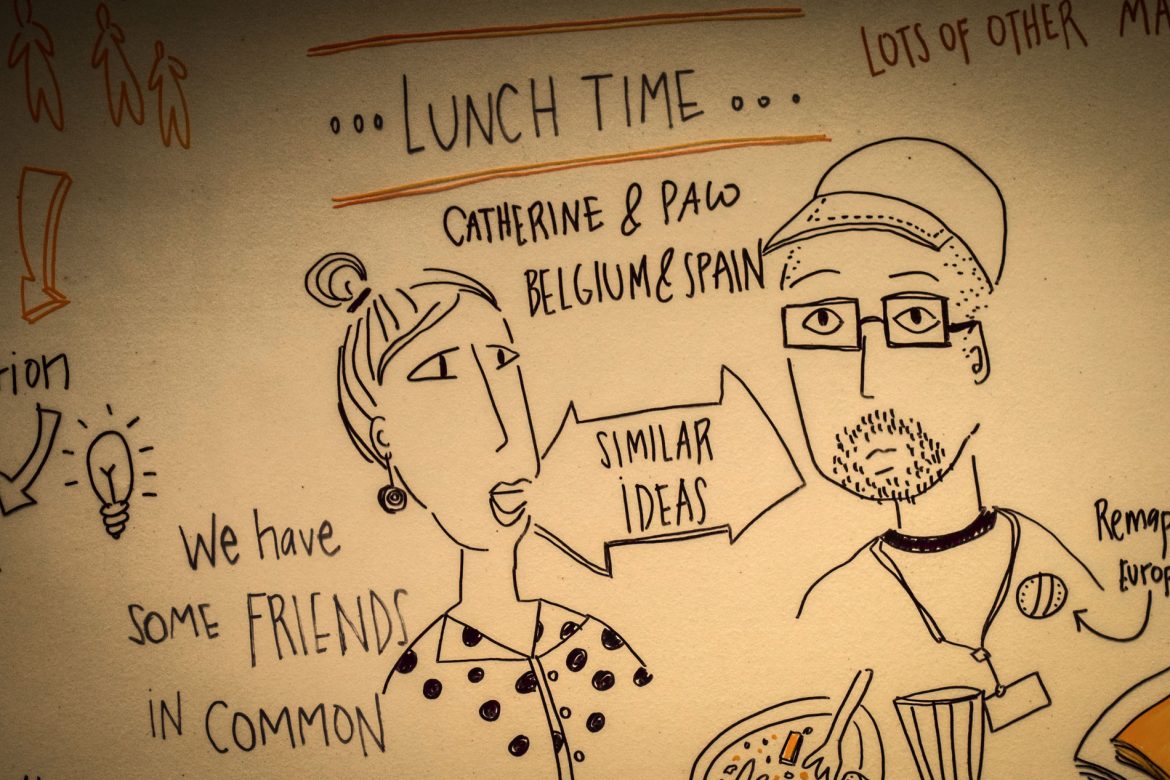 LOTS OF OTHER MA
...LUNCH TIME...
CATHERINE & PACO
BELGIUM & SPAIN
tion
SIMILAR
iDEAS
We have
SOME FRIENDS
iN COMMON
Remap
EUROP